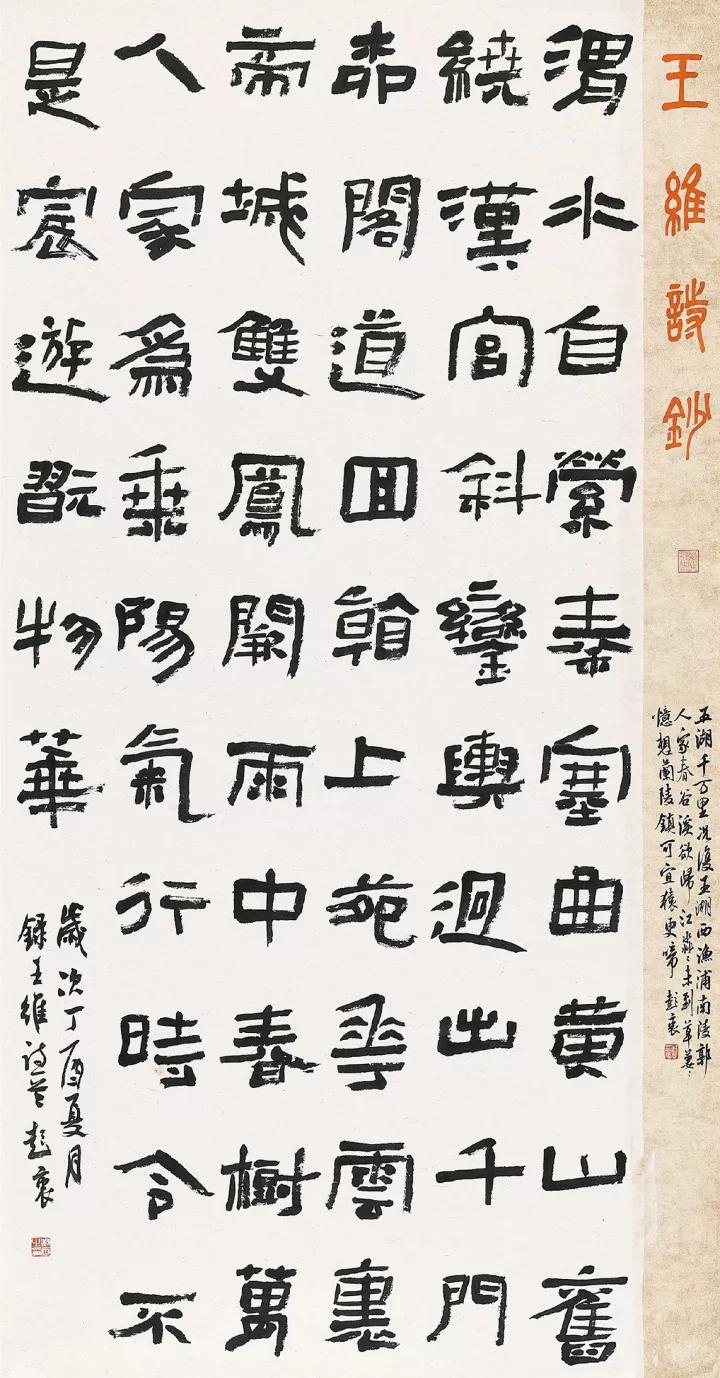 王維詩鈔
五湖千万里况復五湖西漁浦南陵郭
人家春谷溪欲歸江淼〻未到草萋〻
憶想蘭陵鎮可宜猿更啼
渭水自縈秦塞曲黄山舊
繞漢宮斜鑾輿迥出千門
柳閣道回看上苑花雲裏
帝城雙鳳闕雨中春樹萬
人家為乘陽氣行時令不
是宸遊翫物華
歲次丁酉夏月
録王維詩